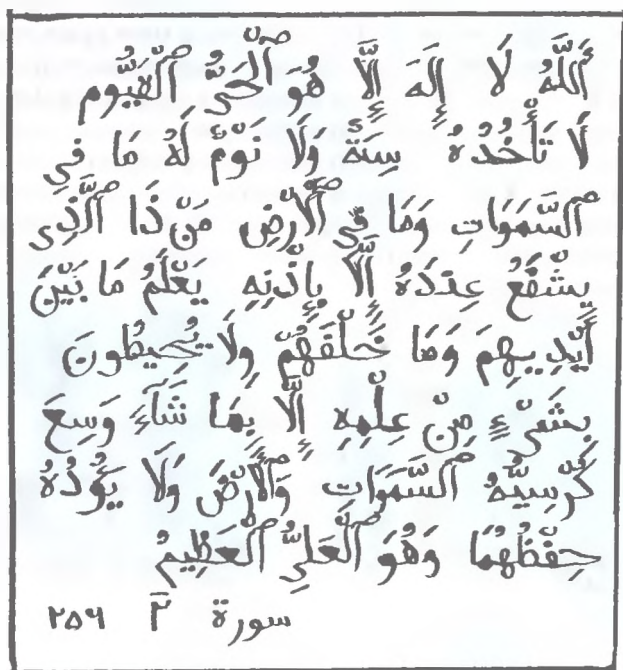 أَللَّهُ لَا إِلَهَ إِلَّا هُوَ ٱلْحَىُّ ٱلْقَيُّوم
لَا تَأْخُدُهُ سِنَةٌ وَلَا نَوْمٌ لَهُ مَا فِي
ٱلسَّمَوَاتِ وَمَا فِي ٱلْأَرْضِ مَنْ ذَا ٱلَّذِى
يَشْفَعُ عِندَهُ إِلَّا بِإِذْنِهِ يَعْلَمُ مَا بَيْنَ
أَيْدِيهِمْ وَمَا خَلْفَهُمْ وَلَا يُحِيطُونَ
بِشَىْءٍ مِنْ عِلْمِهِ إِلَّا بِمَا شَآءَ وَسِعَ
كُرْسِيُّهُ ٱلسَّمَوَاتِ وَٱلْأَرْضَ وَلَا يَؤُدُهُ
حِفْظُهُمَا وَهُوَ ٱلْعَلِىُّ ٱلْعَظِيمُ
سورة ٢ ٢٥٦